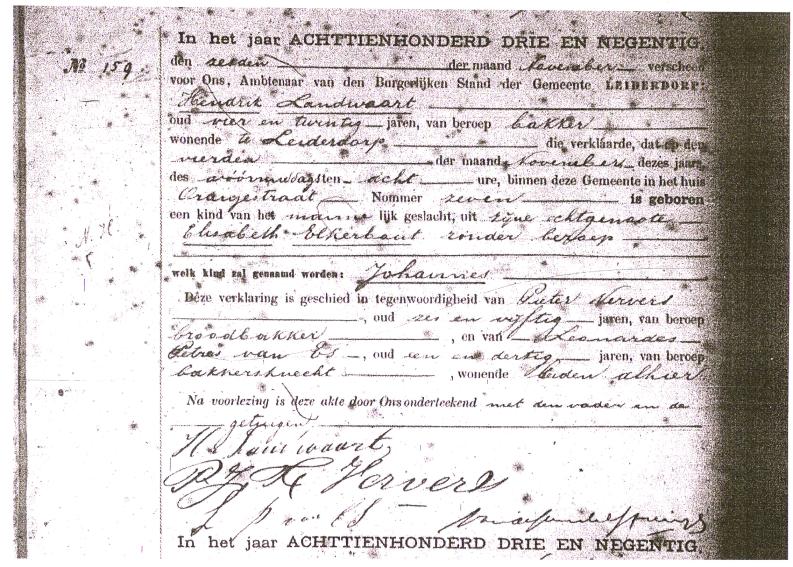 In het jaar ACHTTIENHONDERD DRIE EN NEGENTIG,
No 159.
den zesden der maand November verscheen
voor Ons, Ambtenaar van den Burgerlijken Stand der Gemeente LEIDERDORP:
Hendrik Landwaart
oud vier en twintig jaren, van beroep bakker
wonende te Leiderdorp die verklaarde, dat op den
vierden der maand November dezes jaars,
des voormiddagsten acht ure, binnen deze Gemeente in het huis
Oranjestraat Nommer zeven is geboren
een kind van het mannelijk geslacht, uit zijne echtgenoote
N. H.
Elisabeth Elkerbout zonder beroep
welk kind zal genaamd worden: Johannes
Deze verklaring is geschied in tegenwoordigheid van Pieter Ververs
, oud zes en vijftig jaren, van beroep
broodbakker , en van Leonardes
Petrus van Es , oud een en dertig jaren, van beroep
bakkersknecht , wonende beiden alhier
Na voorlezing is deze akte door Ons onderteekend met den vader en de
getuigen
H. Landwaart
Ververs
L P van Es
In het jaar ACHTTIENHONDERD DRIE EN NEGENTIG,